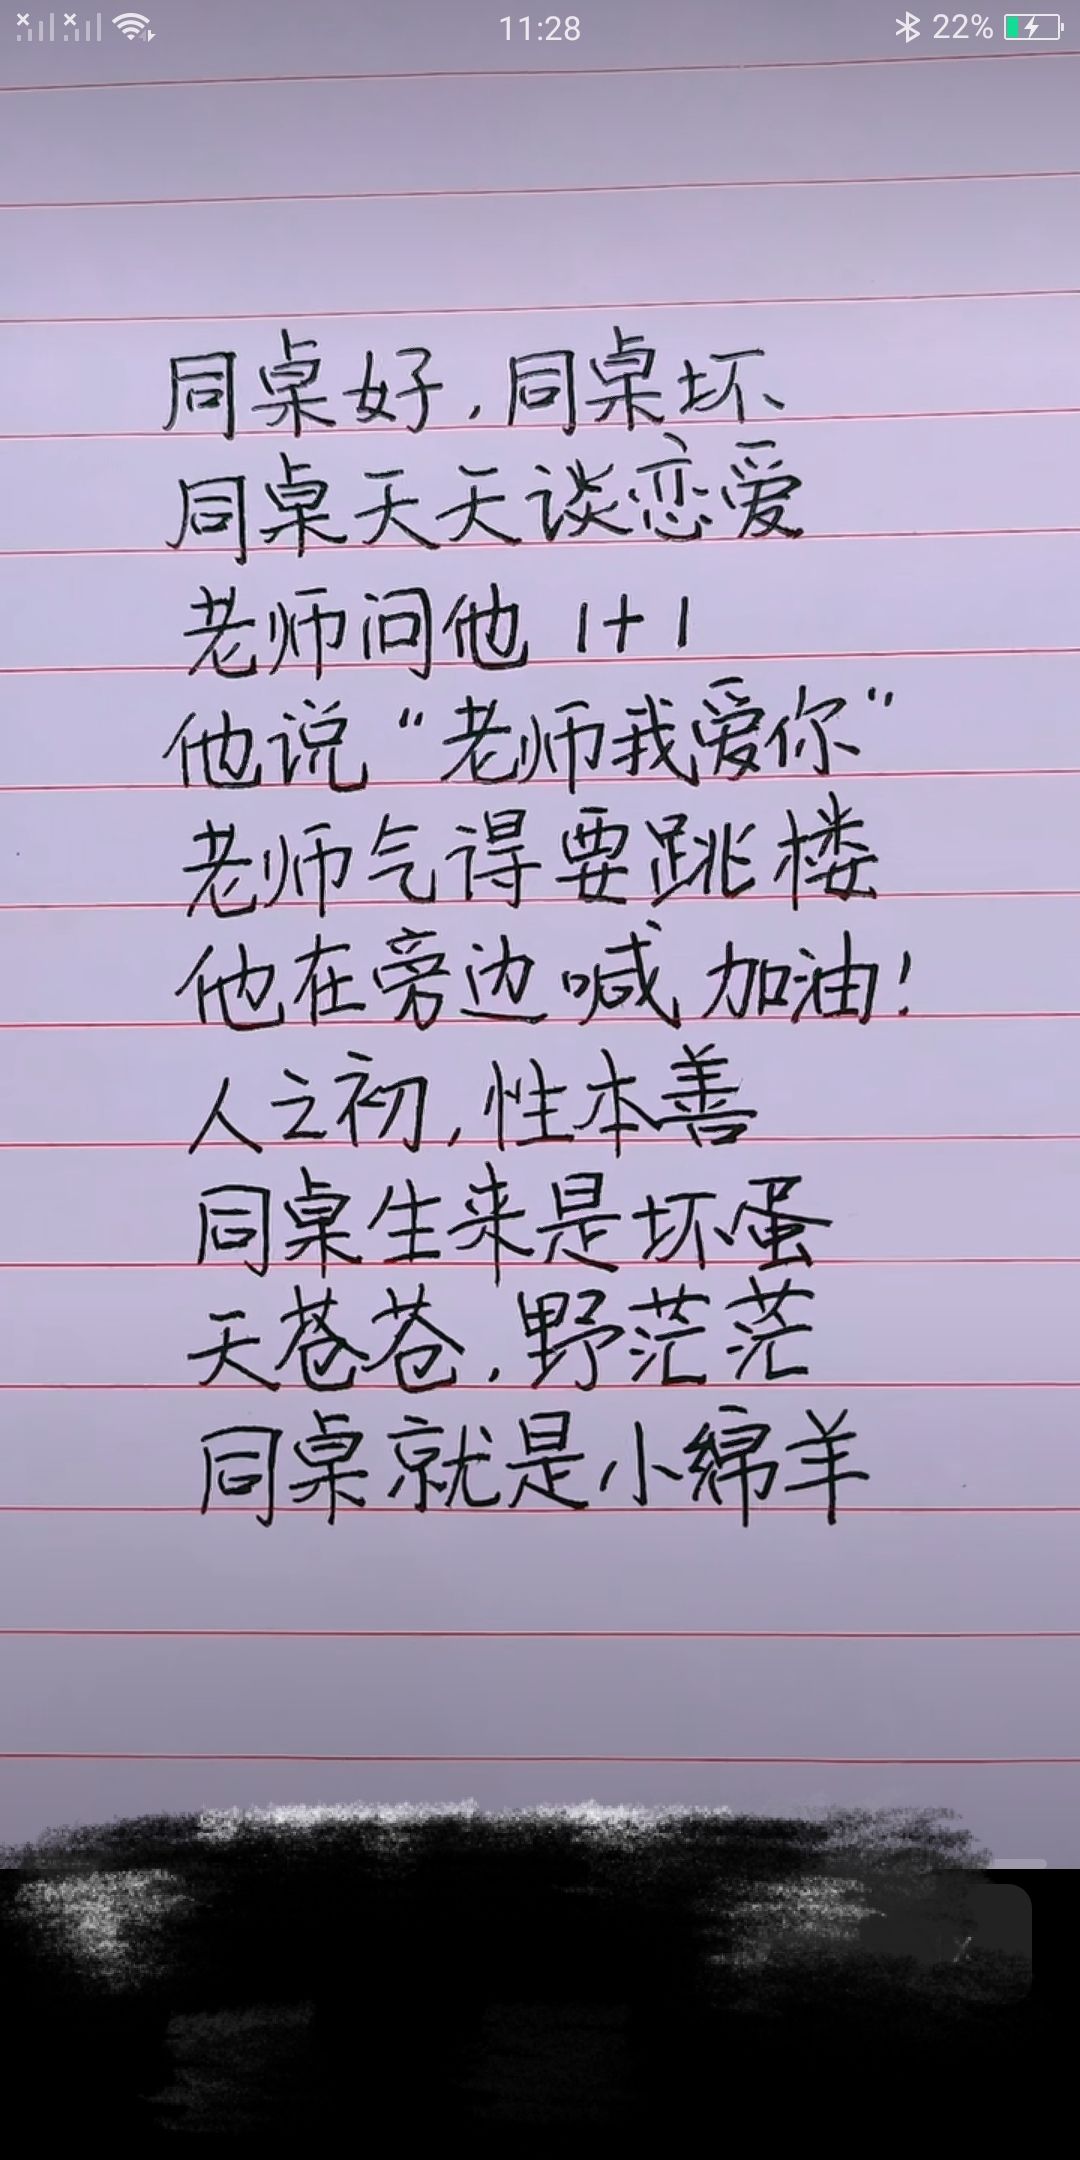 11:28
22%
同桌好,同桌坏
同桌天天谈恋爱
老师问他 1+1
他说“老师我爱你”
老师气得要跳楼
他在旁边喊加油!
人之初,性本善
同桌生来是坏蛋
天苍苍,野茫茫
同桌就是小绵羊